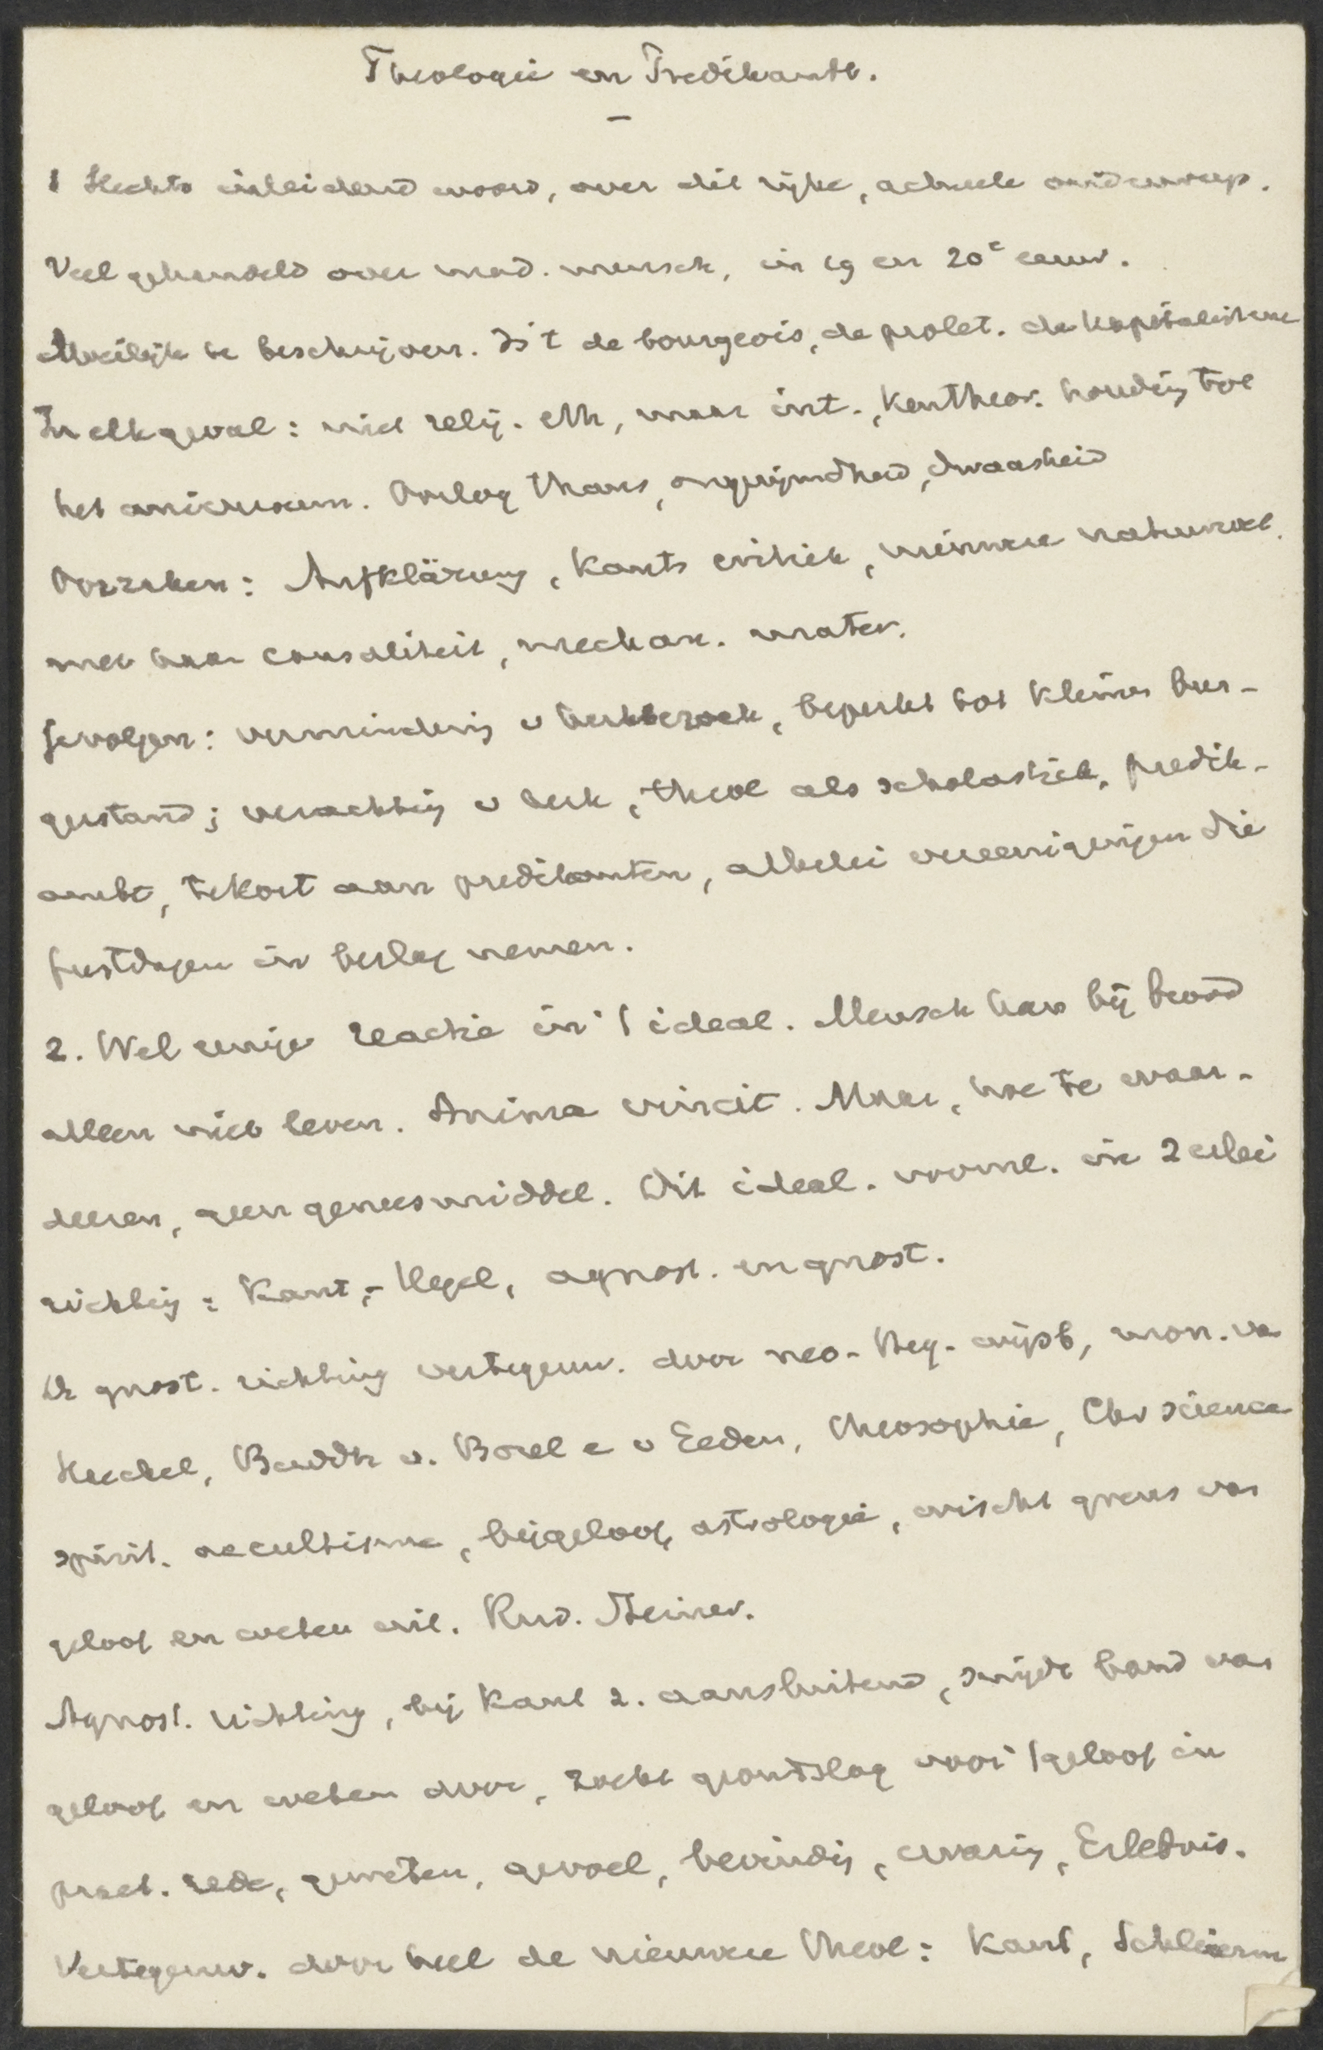 Theologie en Predikambt.
–
1 Slechts inleidend woord, over dit rijke, actueele onderwerp.
Veel gehandeld over mod. mensch, in 19 en 20e eeuw.
Moeilijk te beschrijven. Is 't de bourgeois, de prolet. de kapitalist
In elk geval: niet relig. eth, maar int., kentheor. houding toe
het universum. Oorlog thans, ongerijmdheid, dwaasheid
Oorzaken: Aufklärung, Kants critiek, nieuwere natuurwet.
met haar causaliteit, mechan. mater.
Gevolgen: vermindering v kerkbezoek, beperkt tot kleine bur-
gerstand; verachting v kerk, theol als scholastiek, predik-
ambt, tekort aan predikanten, allerlei vereenigingen die
feestdagen in beslag nemen.
2. Wel eenige reactie in 't ideal. Mensch kan bij brood
alleen niet leven. Anima vincit. Maar, hoe te waar-
deeren, geen geneesmiddel. Dit ideal. vooral. in 2erlei
richting: Kant, - Hegel, agnost. en gnost.
De gnost. richting vertegenw. door neo-Heg. wijsb, mon. va
Haeckel, Buddh v. Borel e v Eeden, Theosophie, Chr science
spirit. occultisme, bijgeloof, astrologie, wischt grens van
geloof en weten uit. Rud. Steiner.
Agnost. richting, bij Kant z. aansluitend, snijdt band van
geloof en weten door, zoekt grondslag voor 't geloof in
pract. rede, geweten, gevoel, bevinding, ervaring, Erlebnis.
Vertegenw. door heel de nieuwere theol: Kant, Schleierm